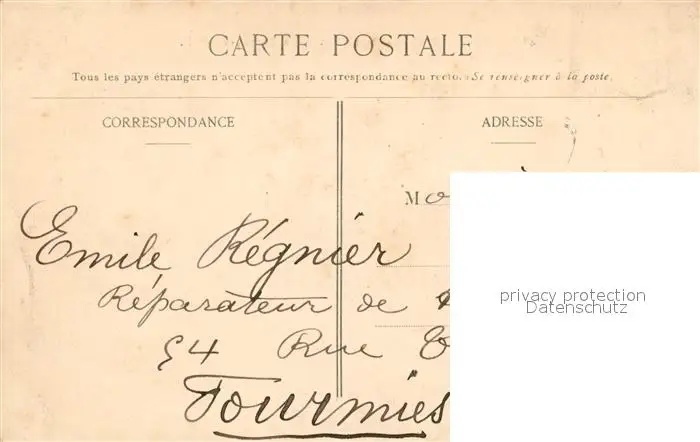 CARTE POSTALE
Tous les pays étrangers n'acceptent pas la correspondance au recto. (Se renseigner à la poste.
CORRESPONDANCE
ADRESSE
Mo
Emile Régnier
Réparateur de
54 Rue
Fourmies
privacy protection
Datenschutz